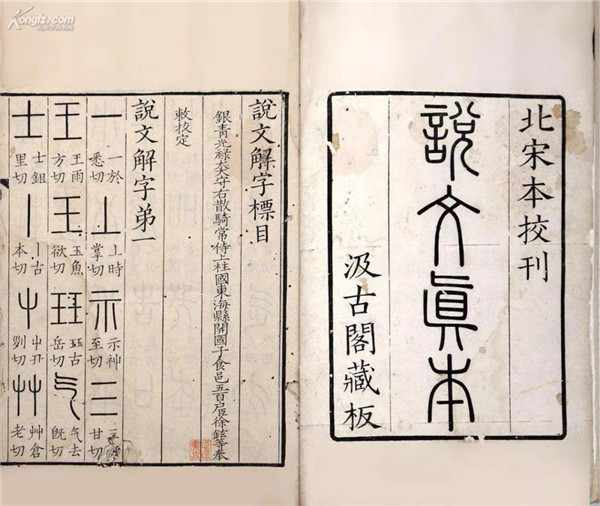 北宋本挍刊
說文眞本
汲古閣藏板
說文解字標目
銀青光禄大夫守右散騎常侍上柱國東海縣開國子食邑五百户臣徐鉉等奉
敕挍定
說文解字弟一
一 一於悉切 丄 丄時掌切 示 示神至切 三 三甘切
王 王雨方切 玉 玉魚欲切 玨 玨古岳切 气 气去旣切
士 士鉏里切 丨 丨古本切 屮 屮丑劉切 艸 艸倉老切
Kongfz.com